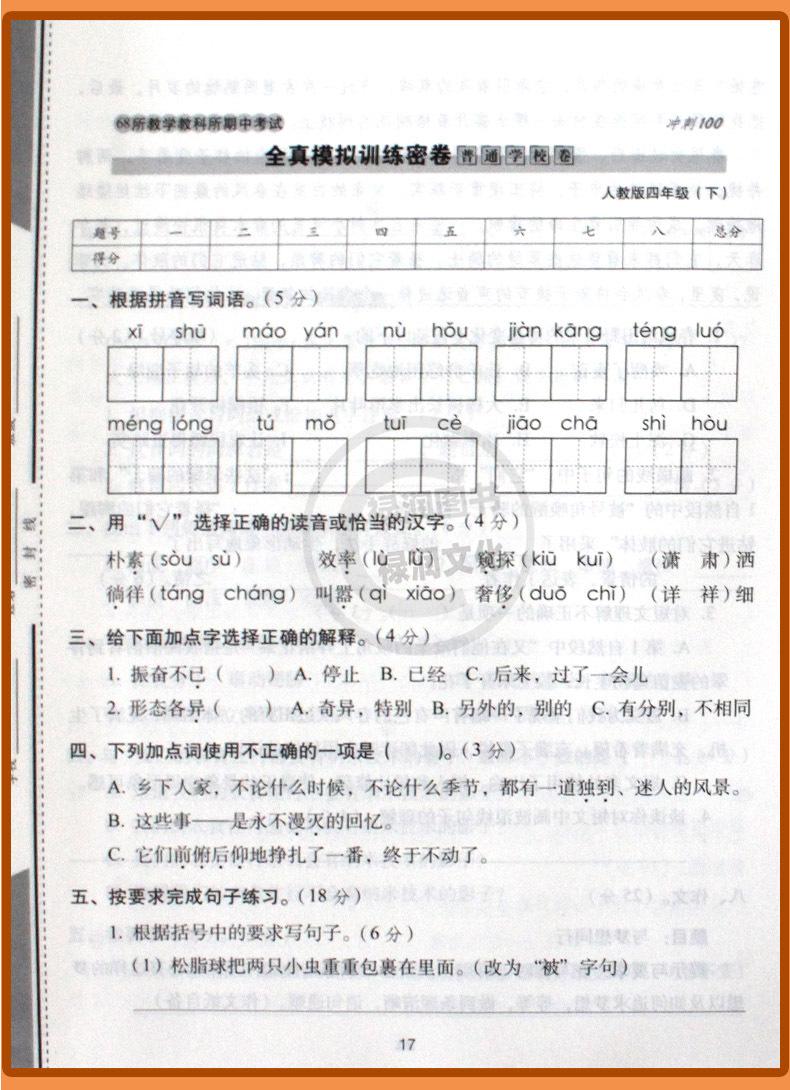 68所教学教科所期中考试
冲刺100
全真模拟训练密卷 普通学校卷
人教版四年级（下）
题号 一 二 三 四 五 六 七 八 总分
得分
一、根据拼音写词语。（5分）
xī shū máo yán nù hǒu jiàn kāng téng luó
méng lóng tú mǒ tuī cè jiāo chā shì hòu
二、用“√”选择正确的读音或恰当的汉字。（4分）
朴素（sòu sù） 效率（lǜ lǜ） 窥探（kiū kuī） （潇 肃）洒
徜徉（táng cháng） 叫嚣（qì xiāo） 奢侈（duō chǐ） （详 祥）细
三、给下面加点字选择正确的解释。（4分）
1. 振奋不已（ ） A. 停止 B. 已经 C. 后来，过了一会儿
2. 形态各异（ ） A. 奇异，特别 B. 另外的，别的 C. 有分别，不相同
四、下列加点词使用不正确的一项是（ ）。（3分）
A. 乡下人家，不论什么时候，不论什么季节，都有一道独到、迷人的风景。
B. 这些事——是永不漫灭的回忆。
C. 它们前俯后仰地挣扎了一番，终于不动了。
五、按要求完成句子练习。（18分）
1. 根据括号中的要求写句子。（6分）
（1）松脂球把两只小虫重重包裹在里面。（改为“被”字句）
17
密 封 线
禄润图书
禄润文化